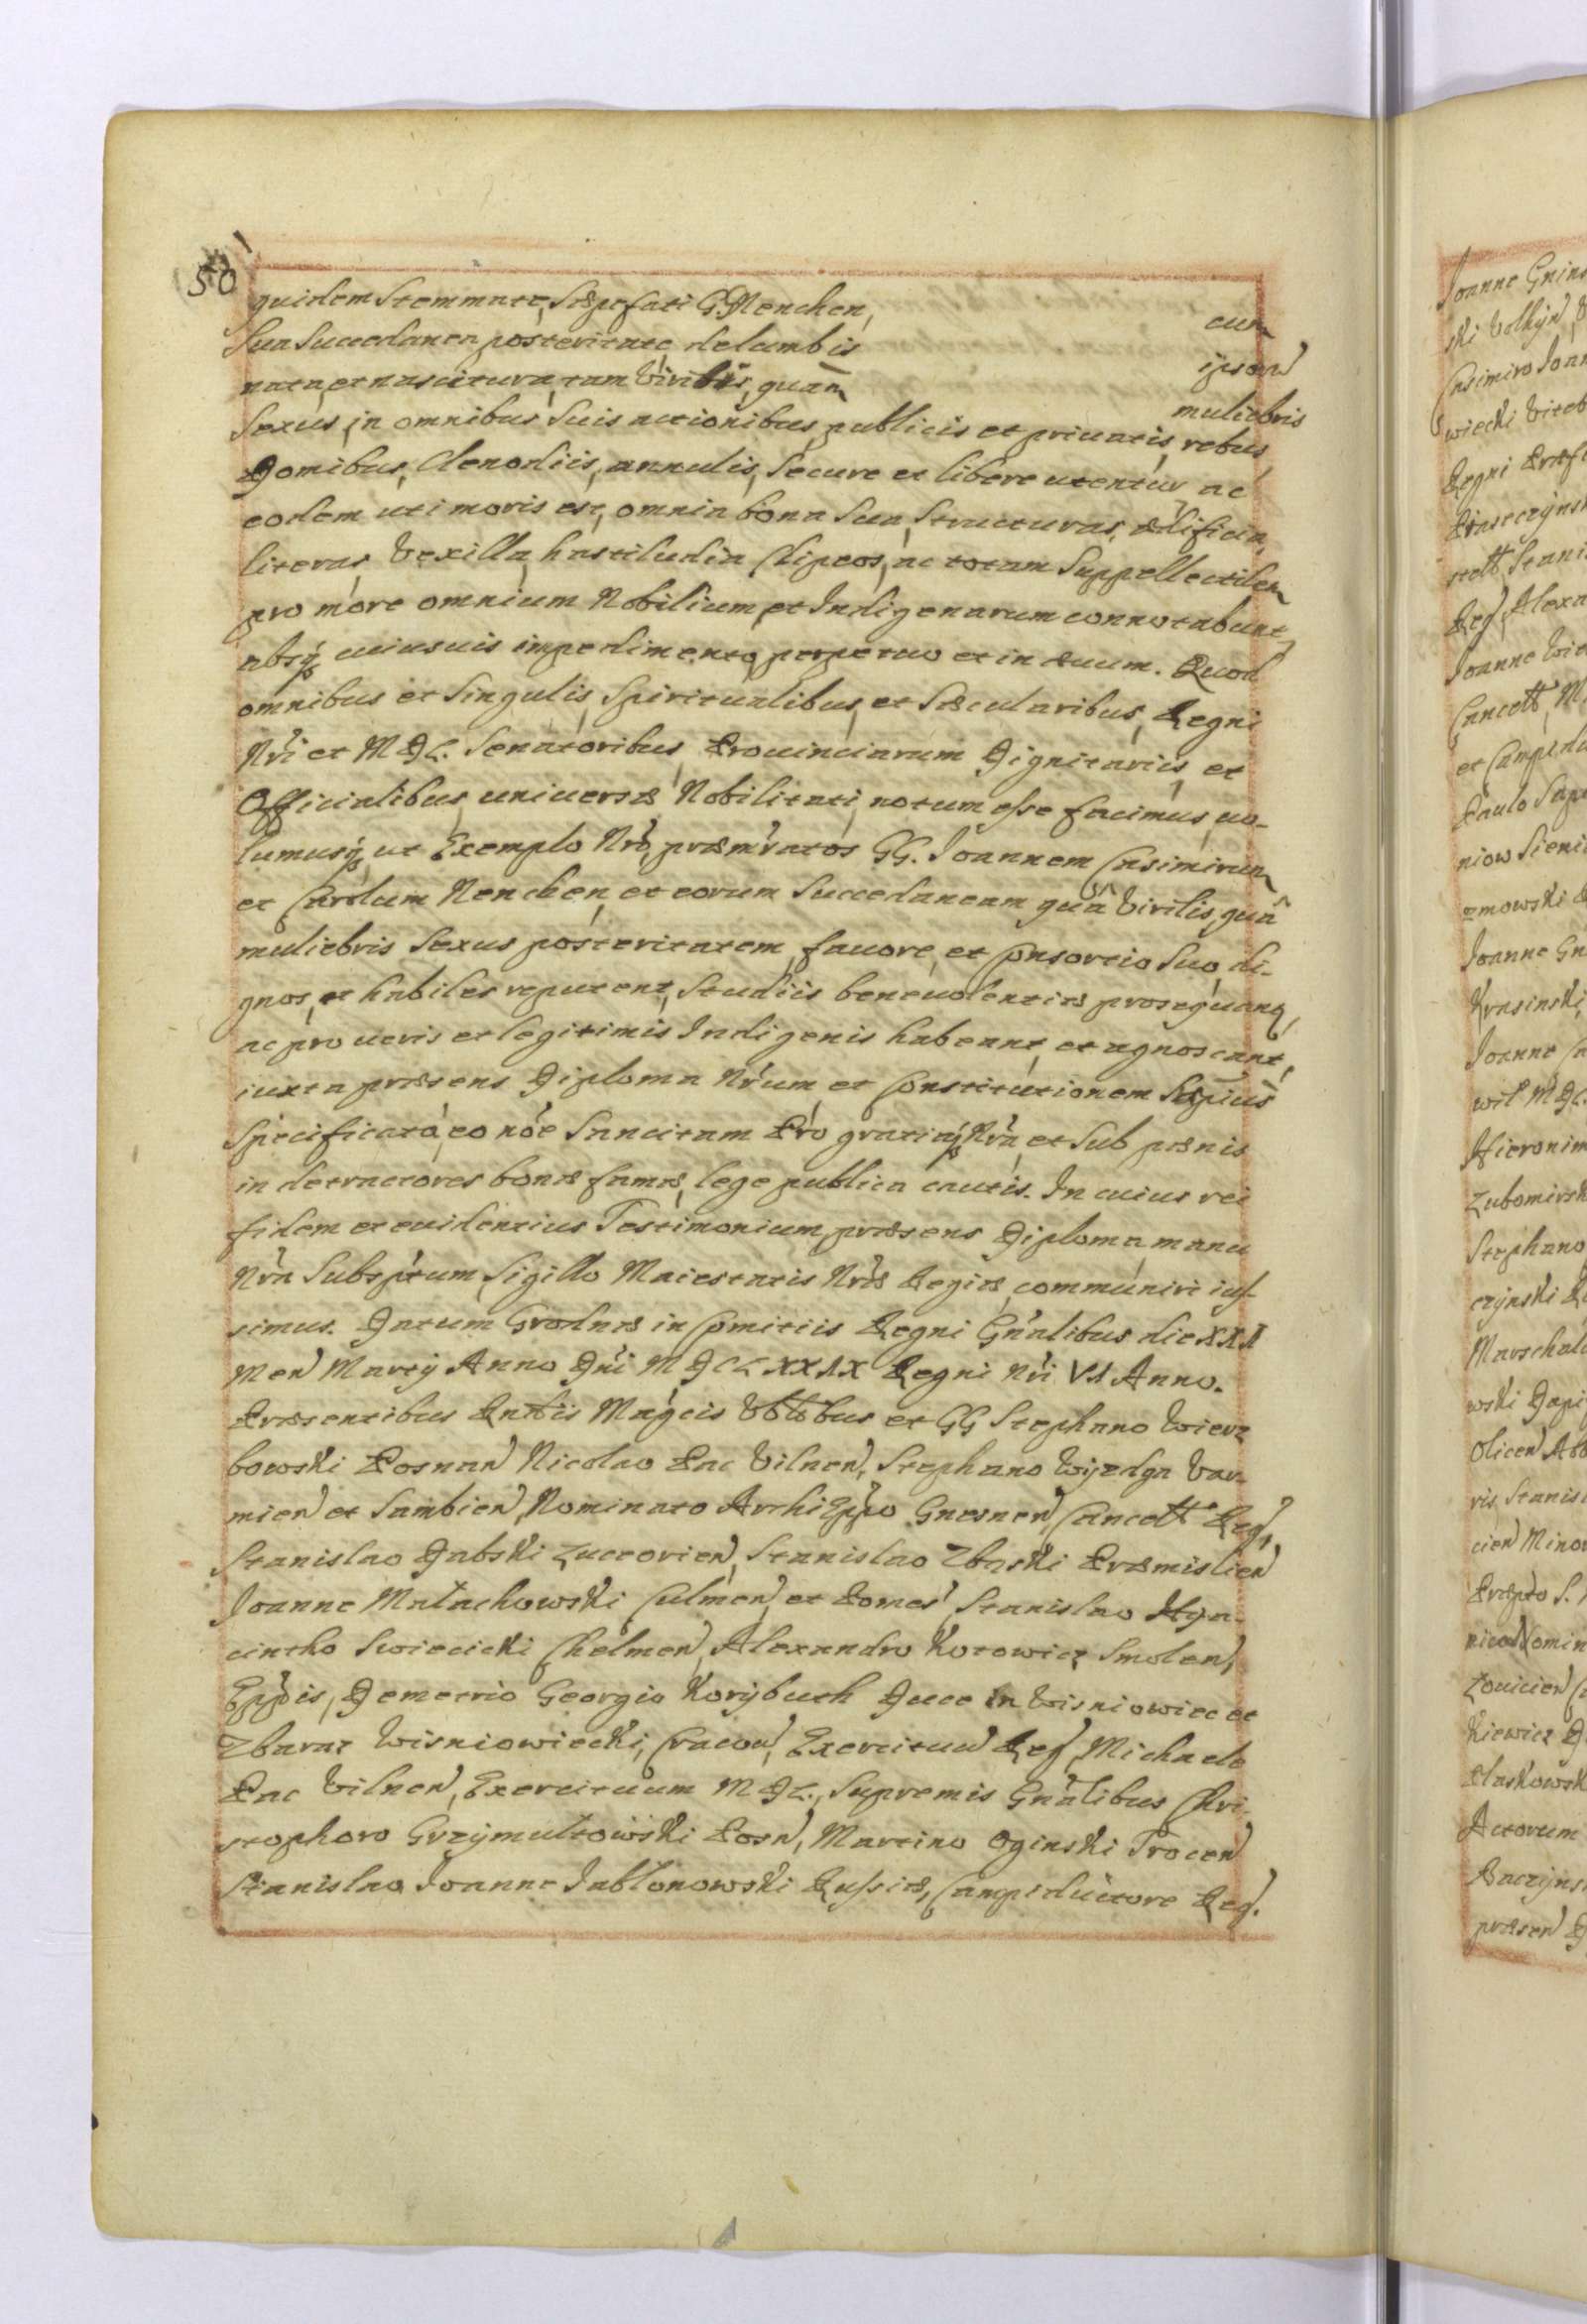 50
quidem Stemmate, Sæpefati GG Nenchen, cum
Sua Succedanea posteritate de lumbis ipsorũ
nata, et nascitura, tam Virilis, quam muliebris
Sexus, in omnibus Suis actionibus, publicis et priuatis, rebus,
Domibus, Clenodiis, annulis, Secure et libere utentur, ac
eodem uti moris est, omnia bona Sua, Structuras, Ædificia,
literas, Vexilla, hastiludia, Clipeos, ac totam Suppellectilem
pro more omnium Nobilium, et Indigenarum connotabunt,
absq; cuiusuis impedimento, perpetuo et in æuum. Quod
omnibus et Singulis, Spiritualibus, et Sæcularibus, Regni
Nri et M D L. Senatoribus, Prouinciarum Dignitariis, et
Officialibus, uniuersæ Nobilitati, notum esse facimus, uo-
lumusq; ut Exemplo Nro, præmratos GG. Joannem Casimirum
et Carolum Nenchen, et eorum Succedaneam quã Virilis, quã
muliebris Sexus posteritatem, fauore, et Consortio Suo, di-
gnos, et habiles reputent, Studiis beneuolentiæ prosequant,
ac pro ueris et legitimis Indigenis habeant, et agnoscant,
iuxta præsens Diploma Nrum, et Constitutionem Sæpius
Specificatã, eo nõe Sancitam Pro gratiaq; Nra, et Sub pænis
in detractores bonæ famæ, lege publica cautis. In cuius rei
fidem et euidentius Testimonium, præsens Diploma manu
Nra Subsptum, Sigillo Maiestatis Nræ Regiæ, communiri ius-
simus. Datum Grodnæ in Comitiis Regni Gnalibus die XXX
Men Martij Anno Dni M DCLXXIX Regni Nri VI Anno.
Præsentibus Rndis Magcis Vbłłbus et GG Stephano Wierz
bowski Posnan, Nicolao Pac Vilnen, Stephano Wijedga Var-
mien et Sambien, Nominato ArchiEppo Gnesnen, Cancell Reg,
Stanislao Dabski Luceorien, Stanislao Zbąski Præmislien
Joanne Małachowski Culmen, et Pomes, Stanislao Hya-
cintho Swiecicki Chelmen, Alexandro Kotowicz Smolen,
Eppis, Demetrio Georgio Korijbuth Duce in Wisniowiec et
Zbaraz Wisniowiecki, Cracou, Exercituu Reg, Michaele
Pac Vilnen, Exercituum M D L., Supremis Gnalibus, Chri-
stophoro Grzijmułtowski Posn, Martino Oginski Trocen
Stanislao Joanne Jabłonowski Russiæ, Campiductore Reg.
Joanne Gnins
Casimiro Joan
wiecki Viteb
Regni Præf
Joanne Wie
Cancell M
Paulo Sap
zmowski
Joanne Gn
Krasinski,
Joanne Ca
wil M DL.
Hieronim
Lubomirsk
Stephano
czijnski
Marschalc
ris, Stanis
cien Mino
kiewicz
Actorum
præsen